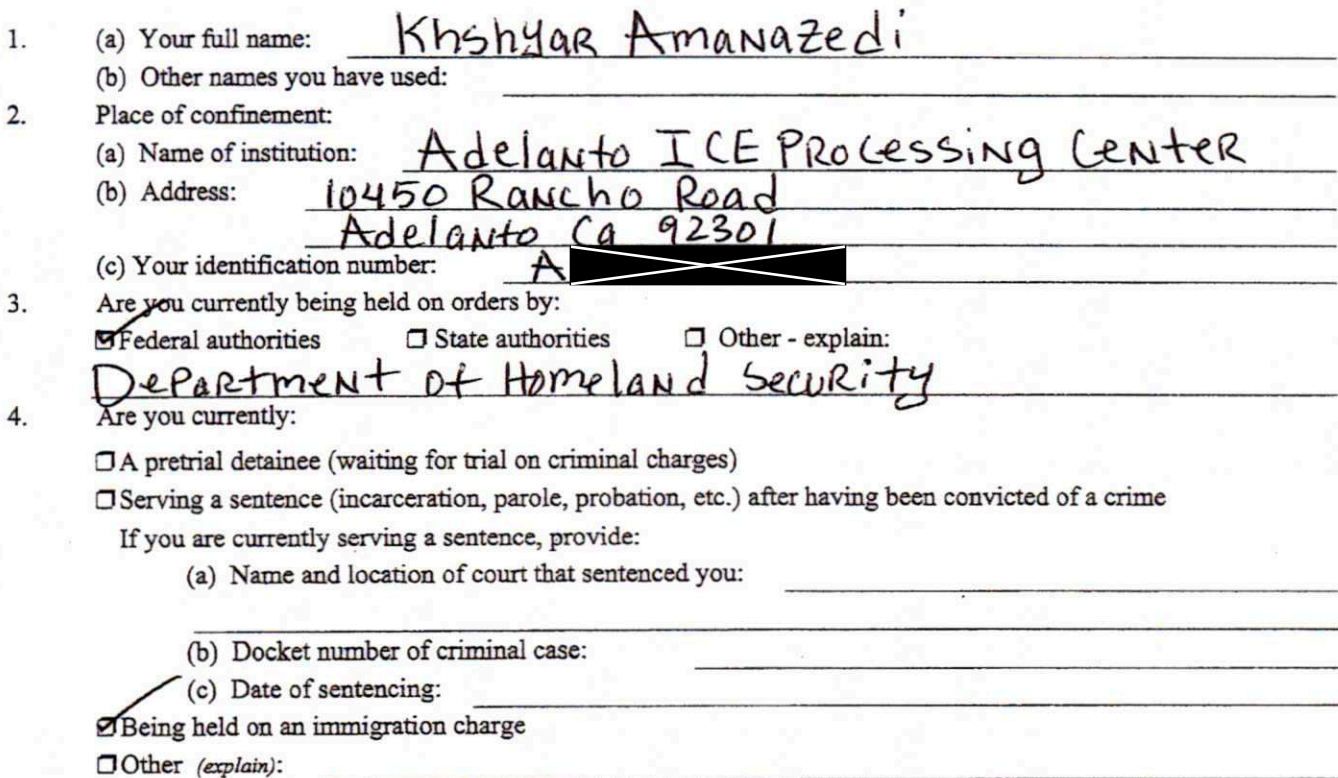 1. (a) Your full name: Khshyar Amanazedi
(b) Other names you have used:
2. Place of confinement:
(a) Name of institution: Adelanto ICE Processing Center
(b) Address: 10450 Rancho Road
Adelanto Ca 92301
(c) Your identification number: A
3. Are you currently being held on orders by:
☑ Federal authorities ☐ State authorities ☐ Other - explain:
Department of Homeland Security
4. Are you currently:
☐ A pretrial detainee (waiting for trial on criminal charges)
☐ Serving a sentence (incarceration, parole, probation, etc.) after having been convicted of a crime
If you are currently serving a sentence, provide:
(a) Name and location of court that sentenced you:
(b) Docket number of criminal case:
(c) Date of sentencing:
☑ Being held on an immigration charge
☐ Other (explain):